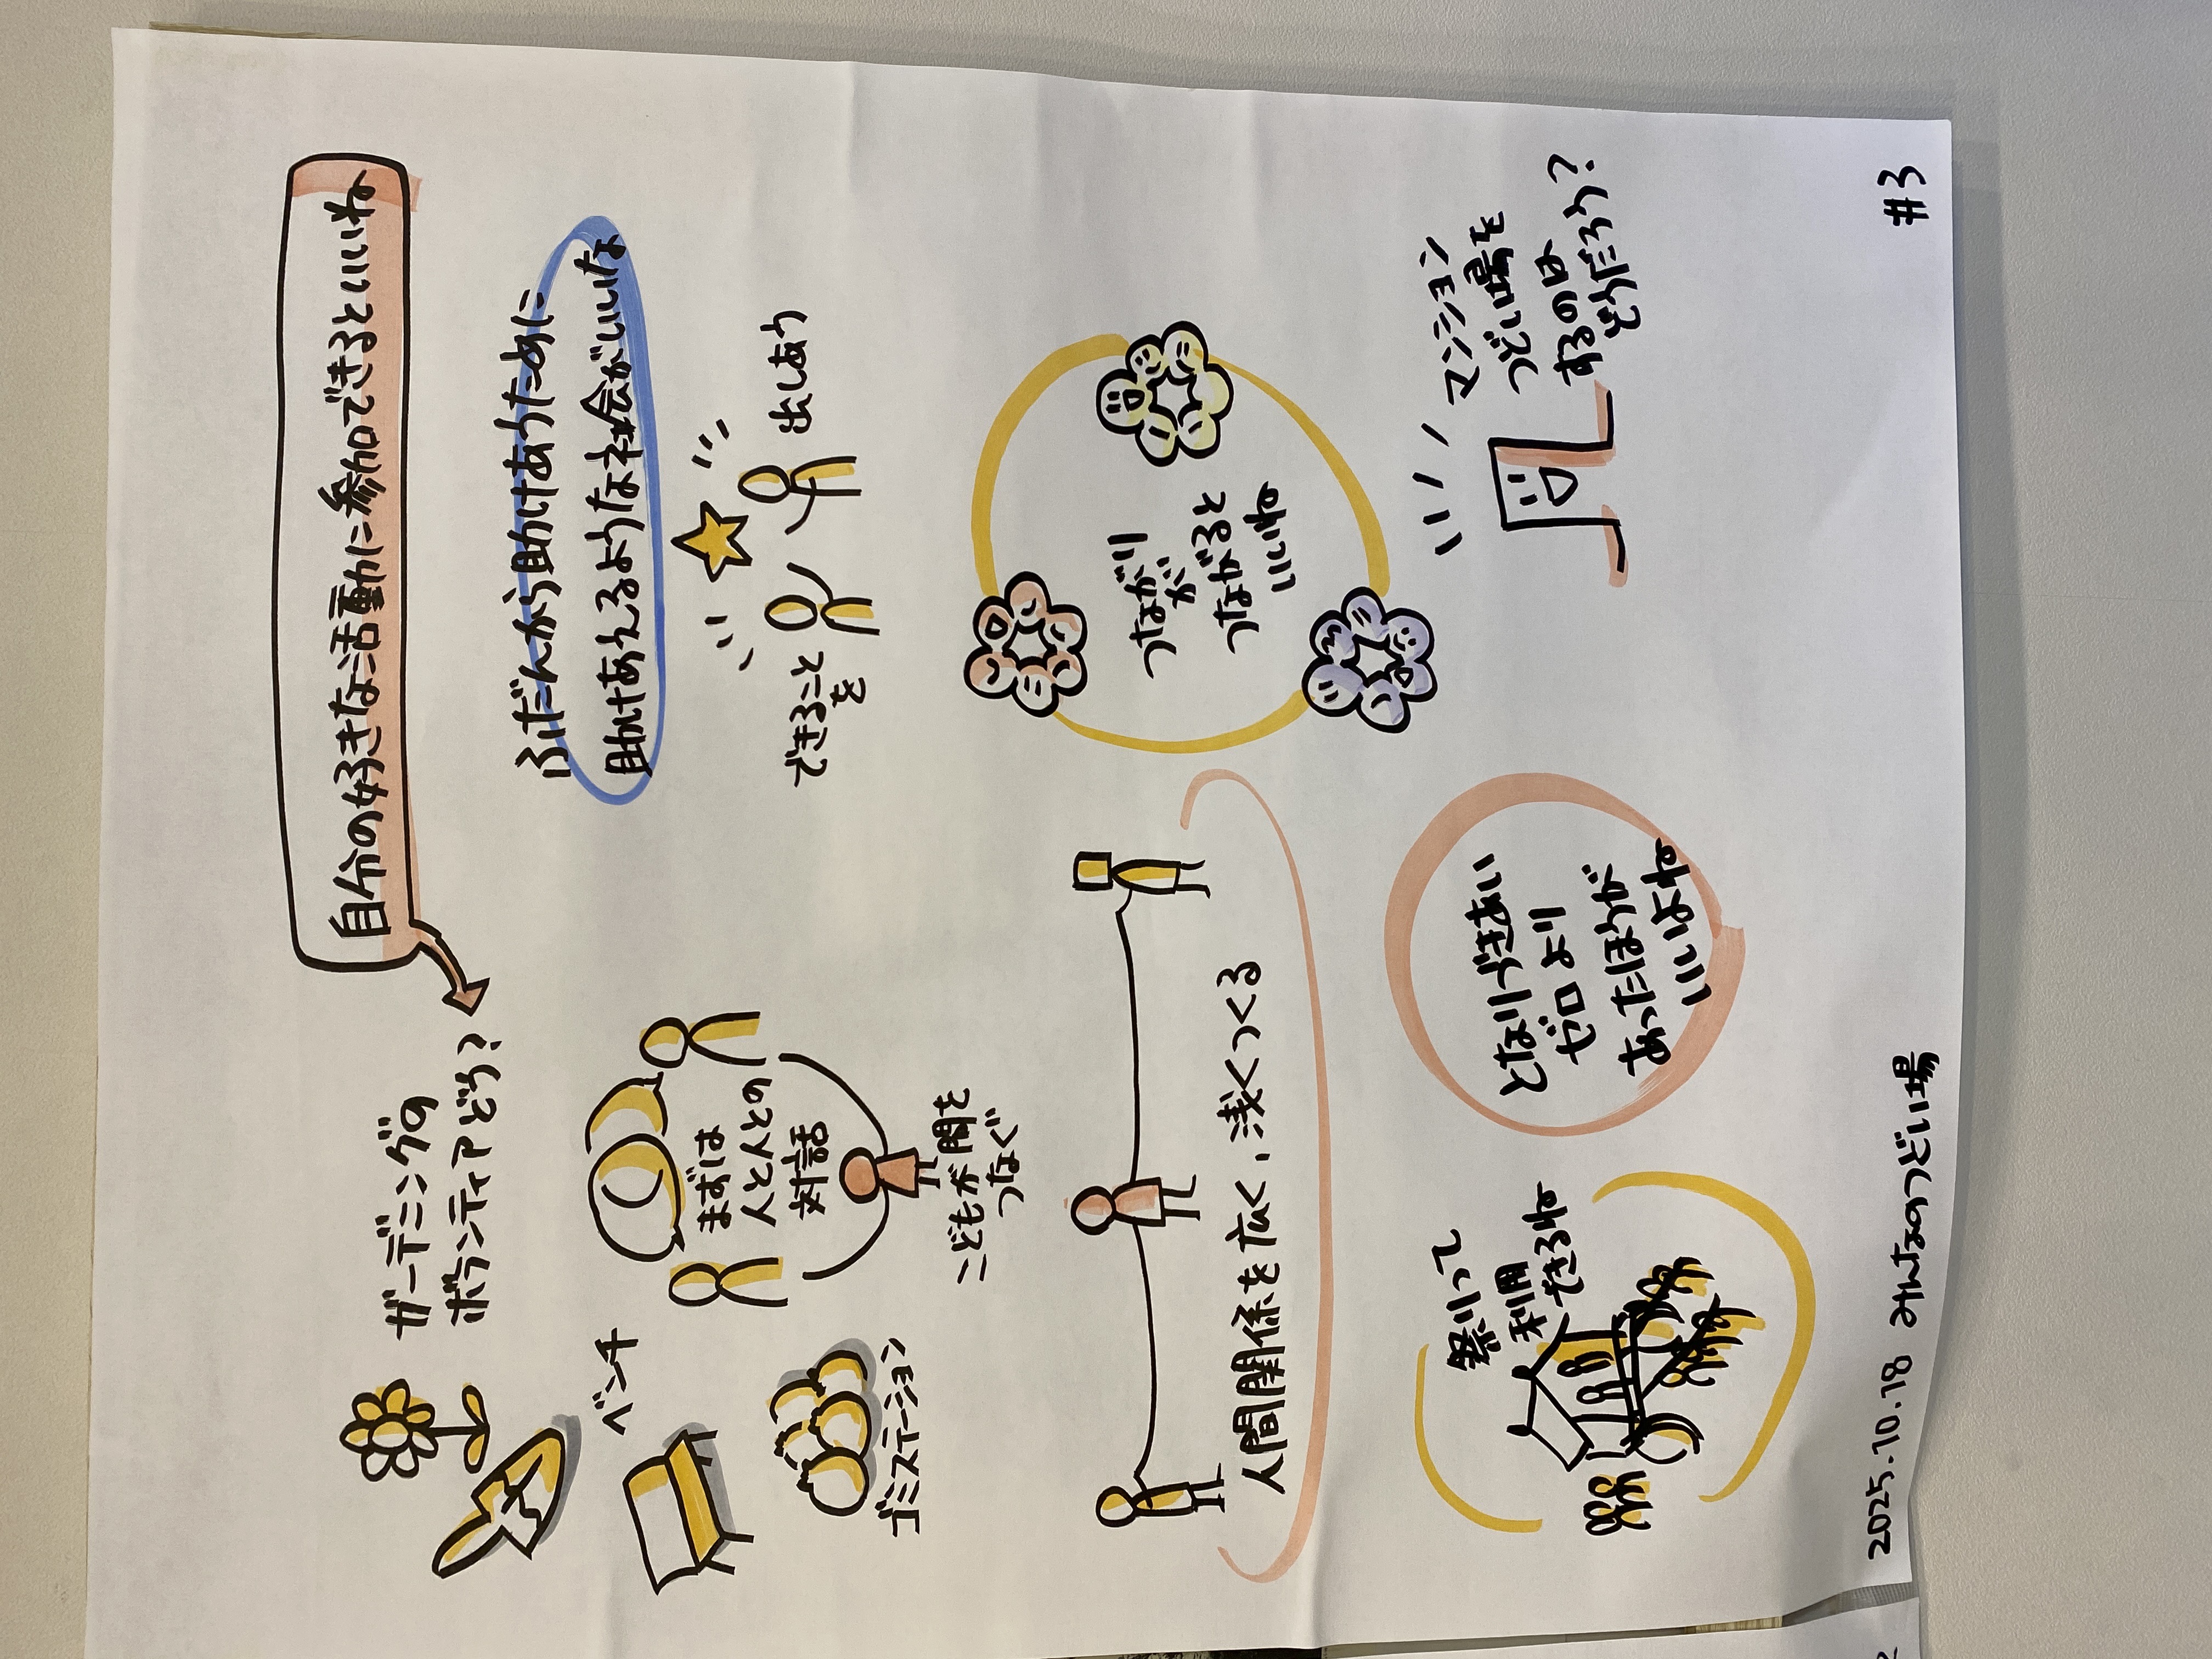 自分の好きな活動に参加できるといいね
ガーデニングの
ボランティアどう?
ベンチ
ゴミステーション
まずは
人と人との
対話
こどもが間を
つなぐ
ふだんから助けあうために
助けあえるような社会がいいな
できること
を
出しあう
人間関係を広く、浅くつくる
つながり
が
つながると
いいね
祭りって
利用
できるね
となりづきあい
ゼロより
あったほうが
いいよね
マンション
つどい場を
するのは
どうだろう?
2025.10.18 みんなのつどい場
#3